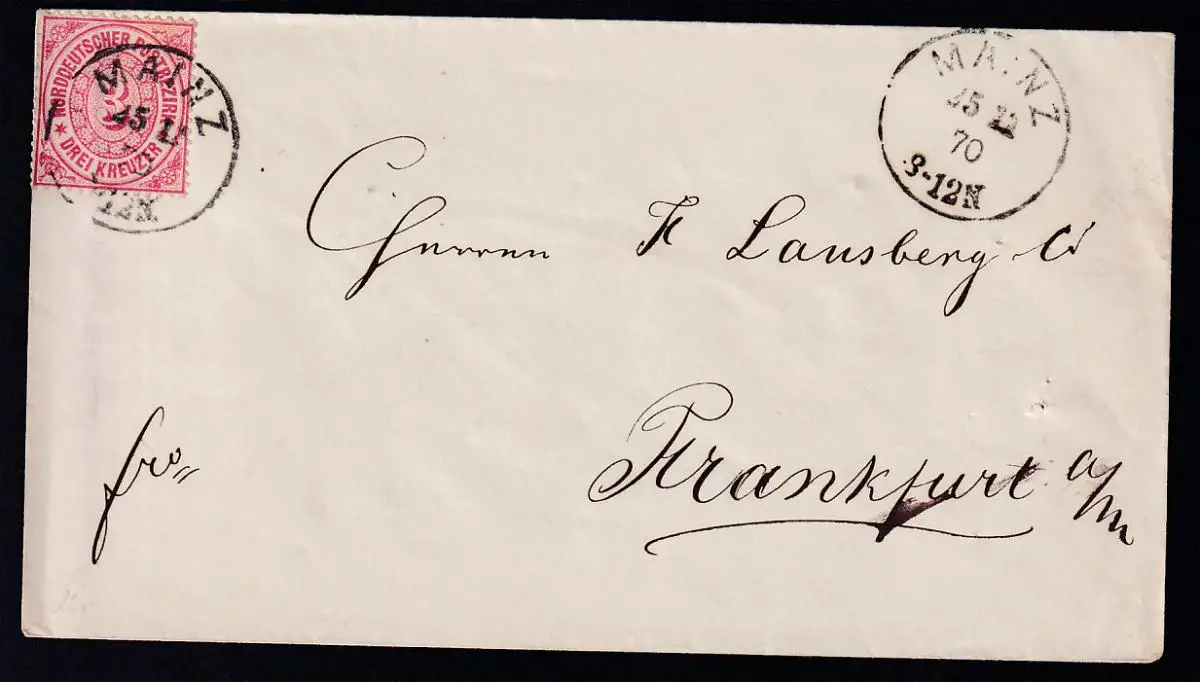 NORDDEUTSCHER POSTBEZIRK
3
DREI KREUZER
MAINZ
12N
MAINZ
70
8-12N
Herren F Lausberg
fro
Frankfurt a/m